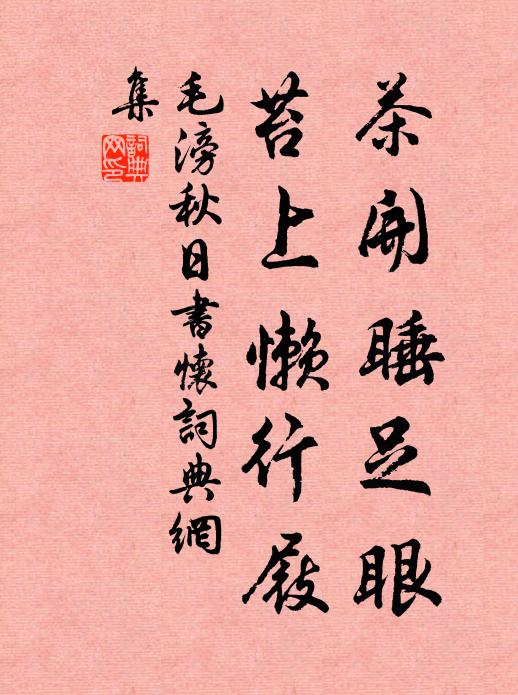 茶開睡足眼
苔上懶行屐
毛滂秋日書懷詞典網
集
詞典
网印